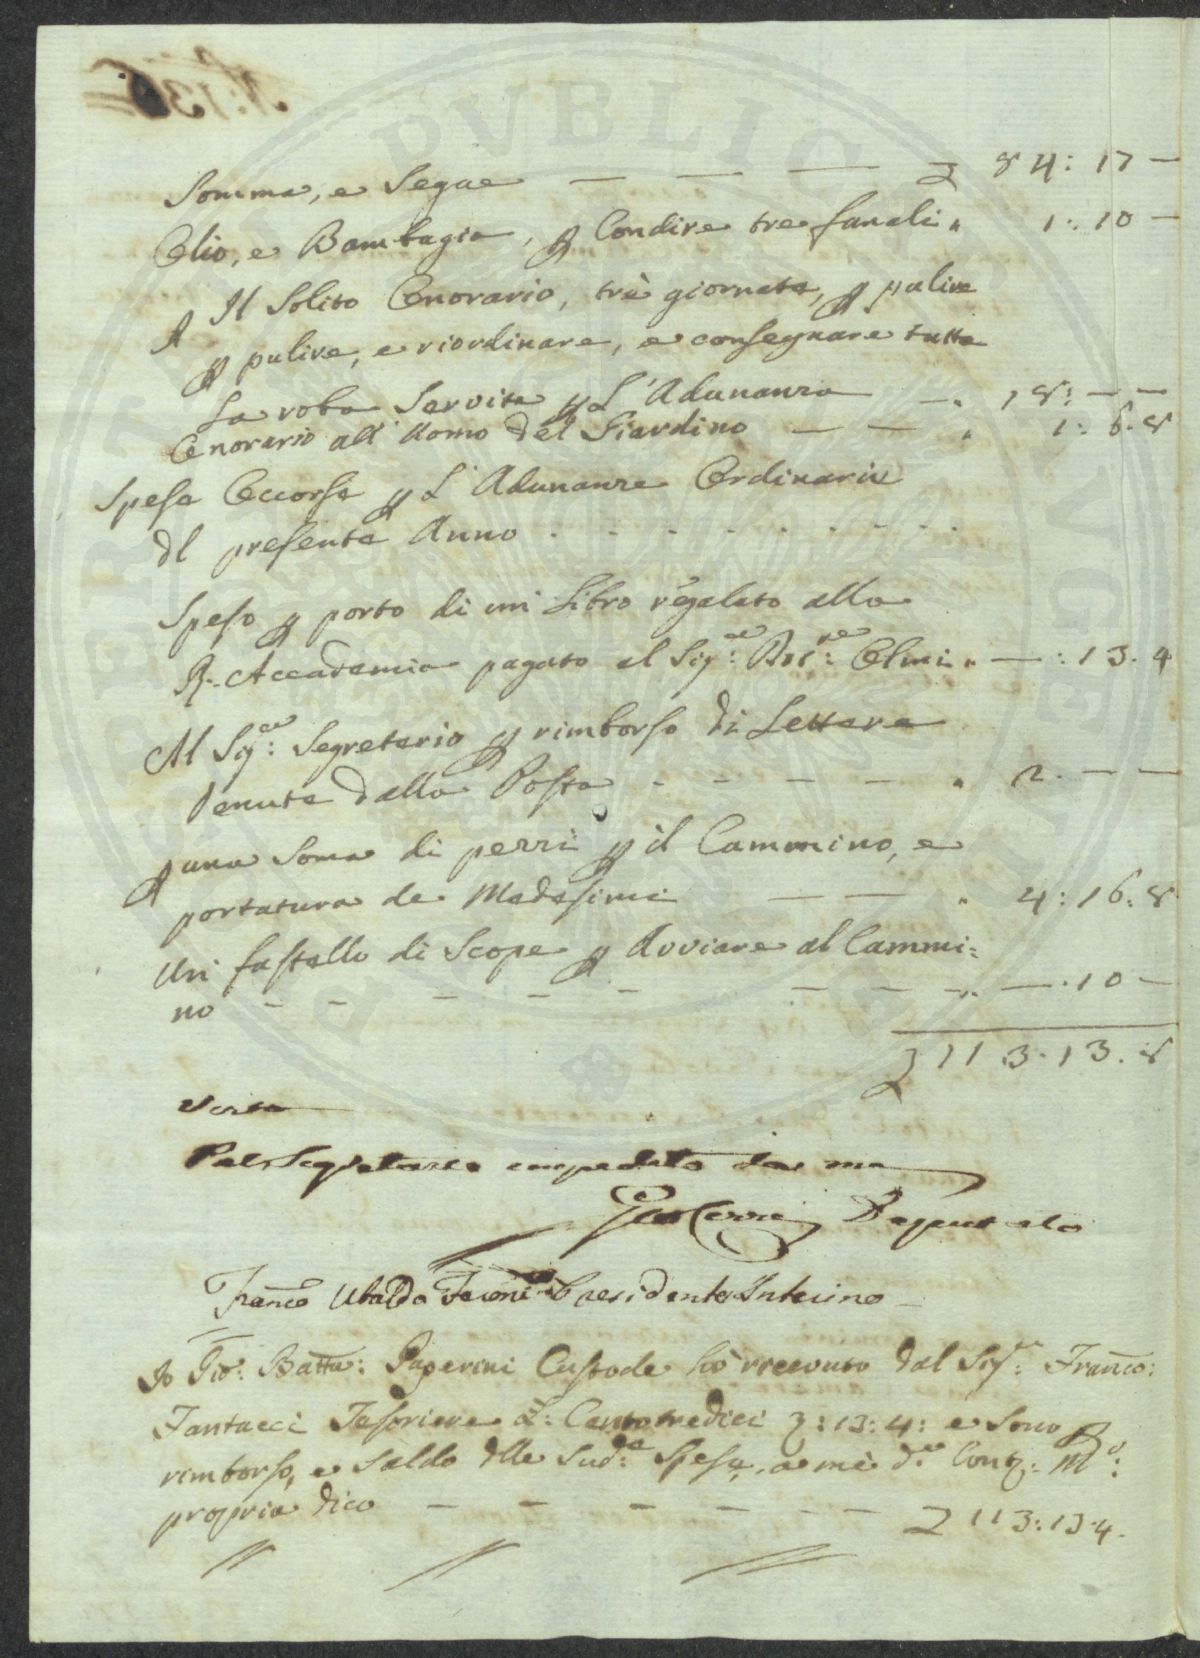 Somma, e Segue — — — £ 84: 17 —
Olio, e Bambagia, p Condire tre fanali " 1: 10 —
A Il Solito Onorario, trè giornate, p pulire
p pulire, e riordinare, e consegnare tutta
La roba Servita p L'Adunanza — " 18: — —
Onorario all'Uomo del Giardino — — " 1: 6. 8
Spese Occorse p L'Adunanze Ordinarie
dl presente Anno . . . . . . . . .
Speso p porto di un Libro regalato alla
R. Accademia pagato al Sig:re Dot:re Olmi " — : 13. 4
Al Sig:re Segretario p rimborso di Lettere
Venute dalla Posta - - - - " 2. — —
p una Soma di pezzi p il Cammino, e
portatura de Medesimi — — " 4: 16: 8
Un fastello di Scope p Avviare al Cammi=
no - - - - - - - - " — . 10 —
£ 113. 13. 8
Visto
Pel Segretario impedito da me
Deputato
Franco Ubaldo Feroni Presidente Interino
Io Gio: Batta: Paperini Custode hò ricevuto dal Sig:re Franco:
Fantacci Tesoriere L: Centotredici £: 13: 4: e Sono p
rimborso, e Saldo dlle Sud:e Spese, a mè do Cont: Mo:
propria dico — - - - - - £ 113: 13. 4.